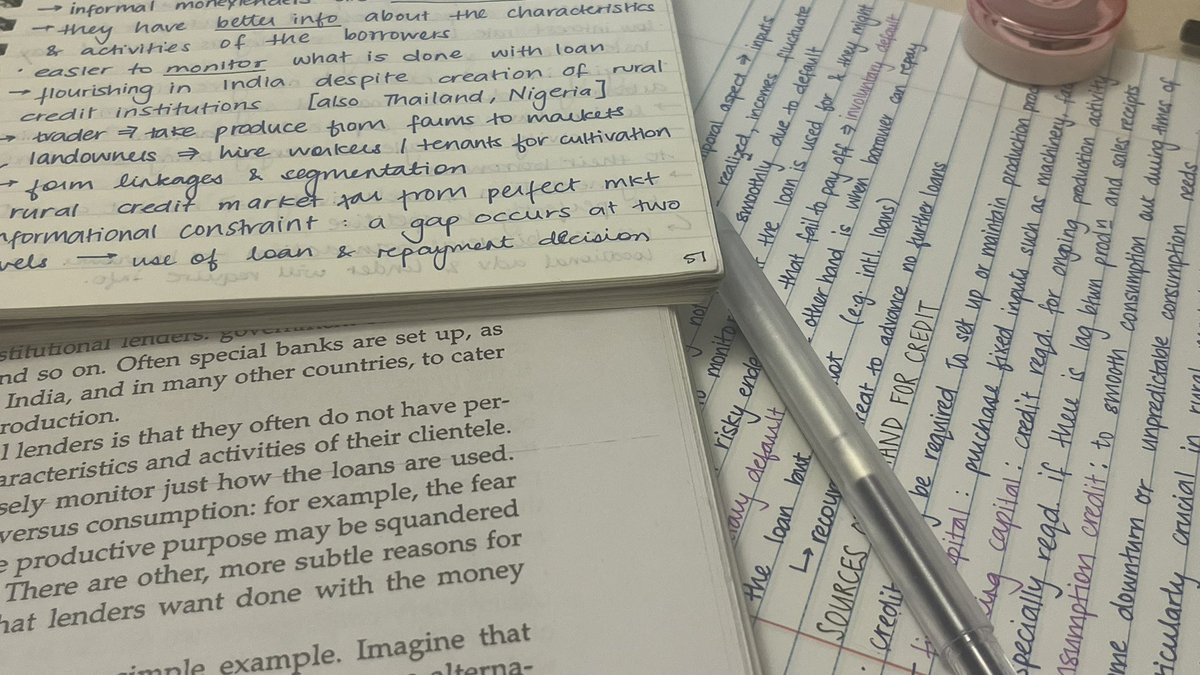 → informal moneylenders
→ they have better info about the characteristics
& activities of the borrowers
· easier to monitor what is done with loan
→ flourishing in India despite creation of rural
credit institutions [also Thailand, Nigeria]
→ trader ⇒ take produce from farms to markets
landowners ⇒ hire workers / tenants for cultivation
→ form linkages & segmentation
rural credit market far from perfect mkt
nformational constraint : a gap occurs at two
vels → use of loan & repayment decision
51
stitutional lenders: government
nd so on. Often special banks are set up, as
India, and in many other countries, to cater
roduction.
l lenders is that they often do not have per-
aracteristics and activities of their clientele.
sely monitor just how the loans are used.
versus consumption: for example, the fear
e productive purpose may be squandered
There are other, more subtle reasons for
hat lenders want done with the money
simple example. Imagine that
alterna-
poral aspect → inputs
realized, incomes fluctuate
smoothly due to default
the loan is used for & they might
that fail to pay off ⇒ involuntary default
other hand is when borrower can repay
not (e.g. intl loans)
reat to advance no further loans
to monitor
risky
default
the loan but
↳ recou
SOURCES AND FOR CREDIT
: credit y be required to set up or maintain production
pital : purchase fixed inputs such as machinery
ng capital : credit reqd. for ongoing production activity
specially reqd. if there is lag btwn prodn and sales receipts
nsumption credit : to smooth consumption out during times of
me downturn or unpredictable consumption needs
ticularly crucial in rural